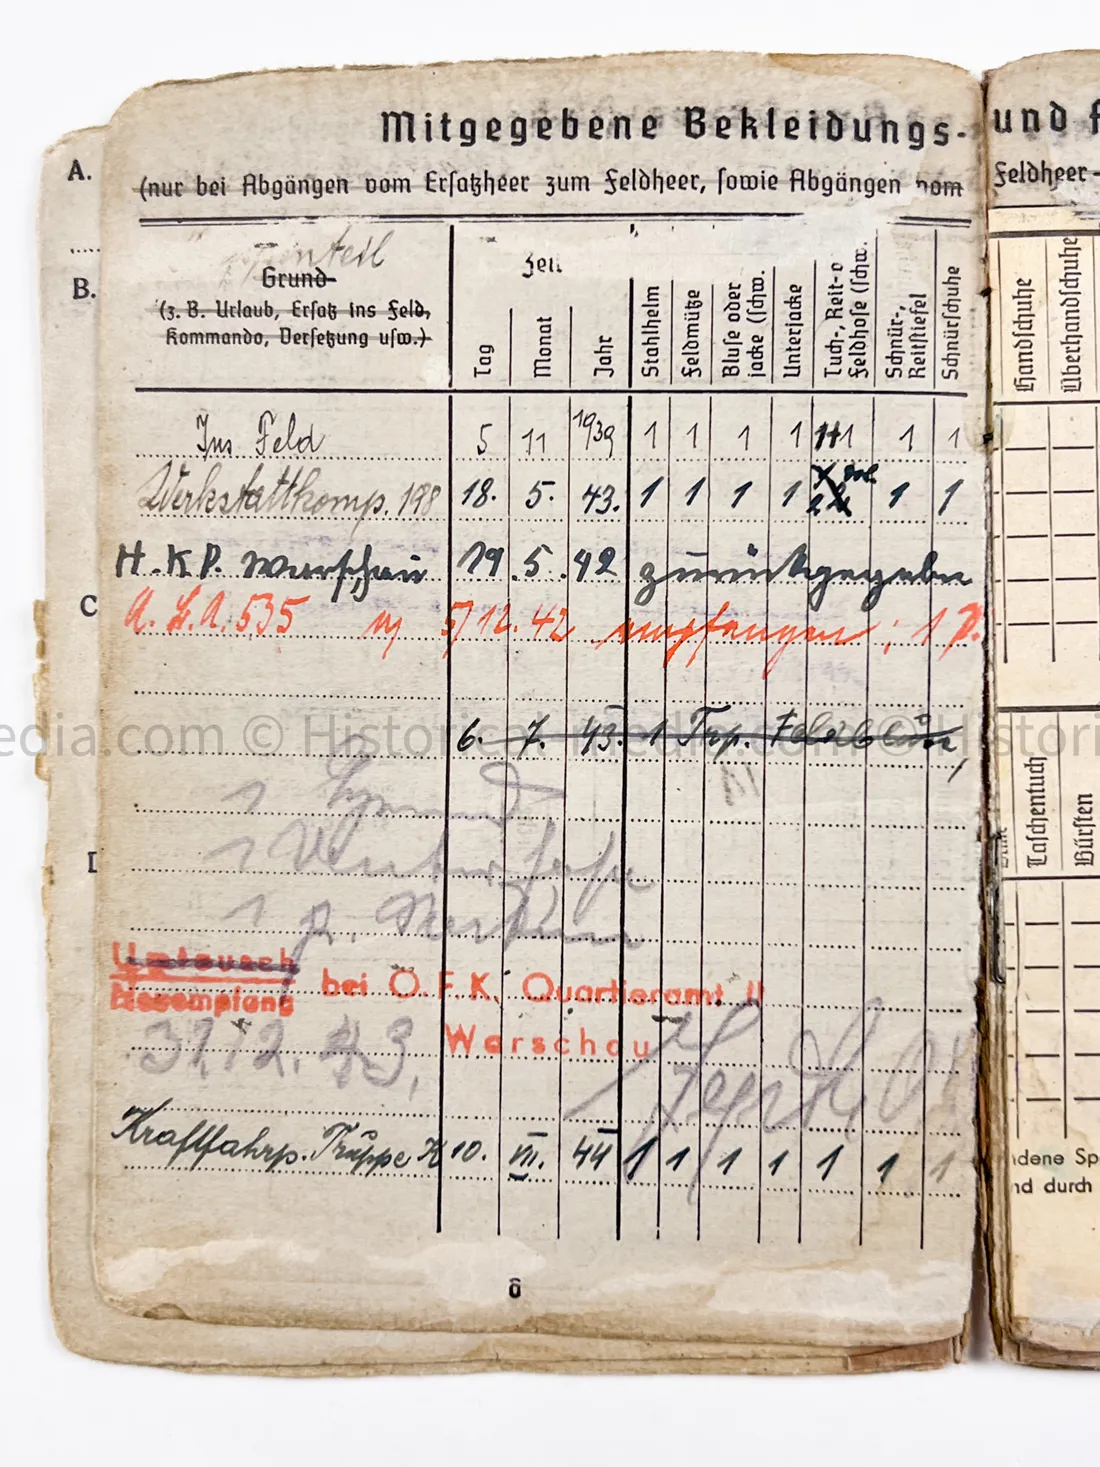 A.
B.
C
D
Mitgegebene Bekleidungs- und
(nur bei Abgängen vom Ersatzheer zum Feldheer, sowie Abgängen vom Feldheer-
Grund-
(z. B. Urlaub, Ersatz ins Feld,
Kommando, Versetzung usw.)
Zeit
Tag Monat Jahr Stahlhelm Feldmütze Bluse oder jacke (schw. Unterjacke Tuch-, Reit- o Feldhose (schw. Schnür-, Reitstiefel Schnürschuhe Handschuhe Überhandschuhe
Ins Feld 5 11 1939 1 1 1 1 1+1 1 1
Werkstattkomp. 198 18. 5. 43. 1 1 1 1 1 1
H.K.P. Warschau 19. 5. 42 zurückgegeben
A. 535 5/12. 42 empfangen; 1 P.
6. 7. 43. 1 Trp. Feldbluse
Taschentuch Bürsten
1 Hemd
1 Unterhose
1 P.
Umtausch
Neuempfang bei O.F.K. Quartieramt II
31.12.43. Warschau
Kraftfahrp. Truppe K 10. VII. 44 1 1 1 1 1 1 1
ndene Sp
nd durch
6
edia.com © Historical Media.com © Histori